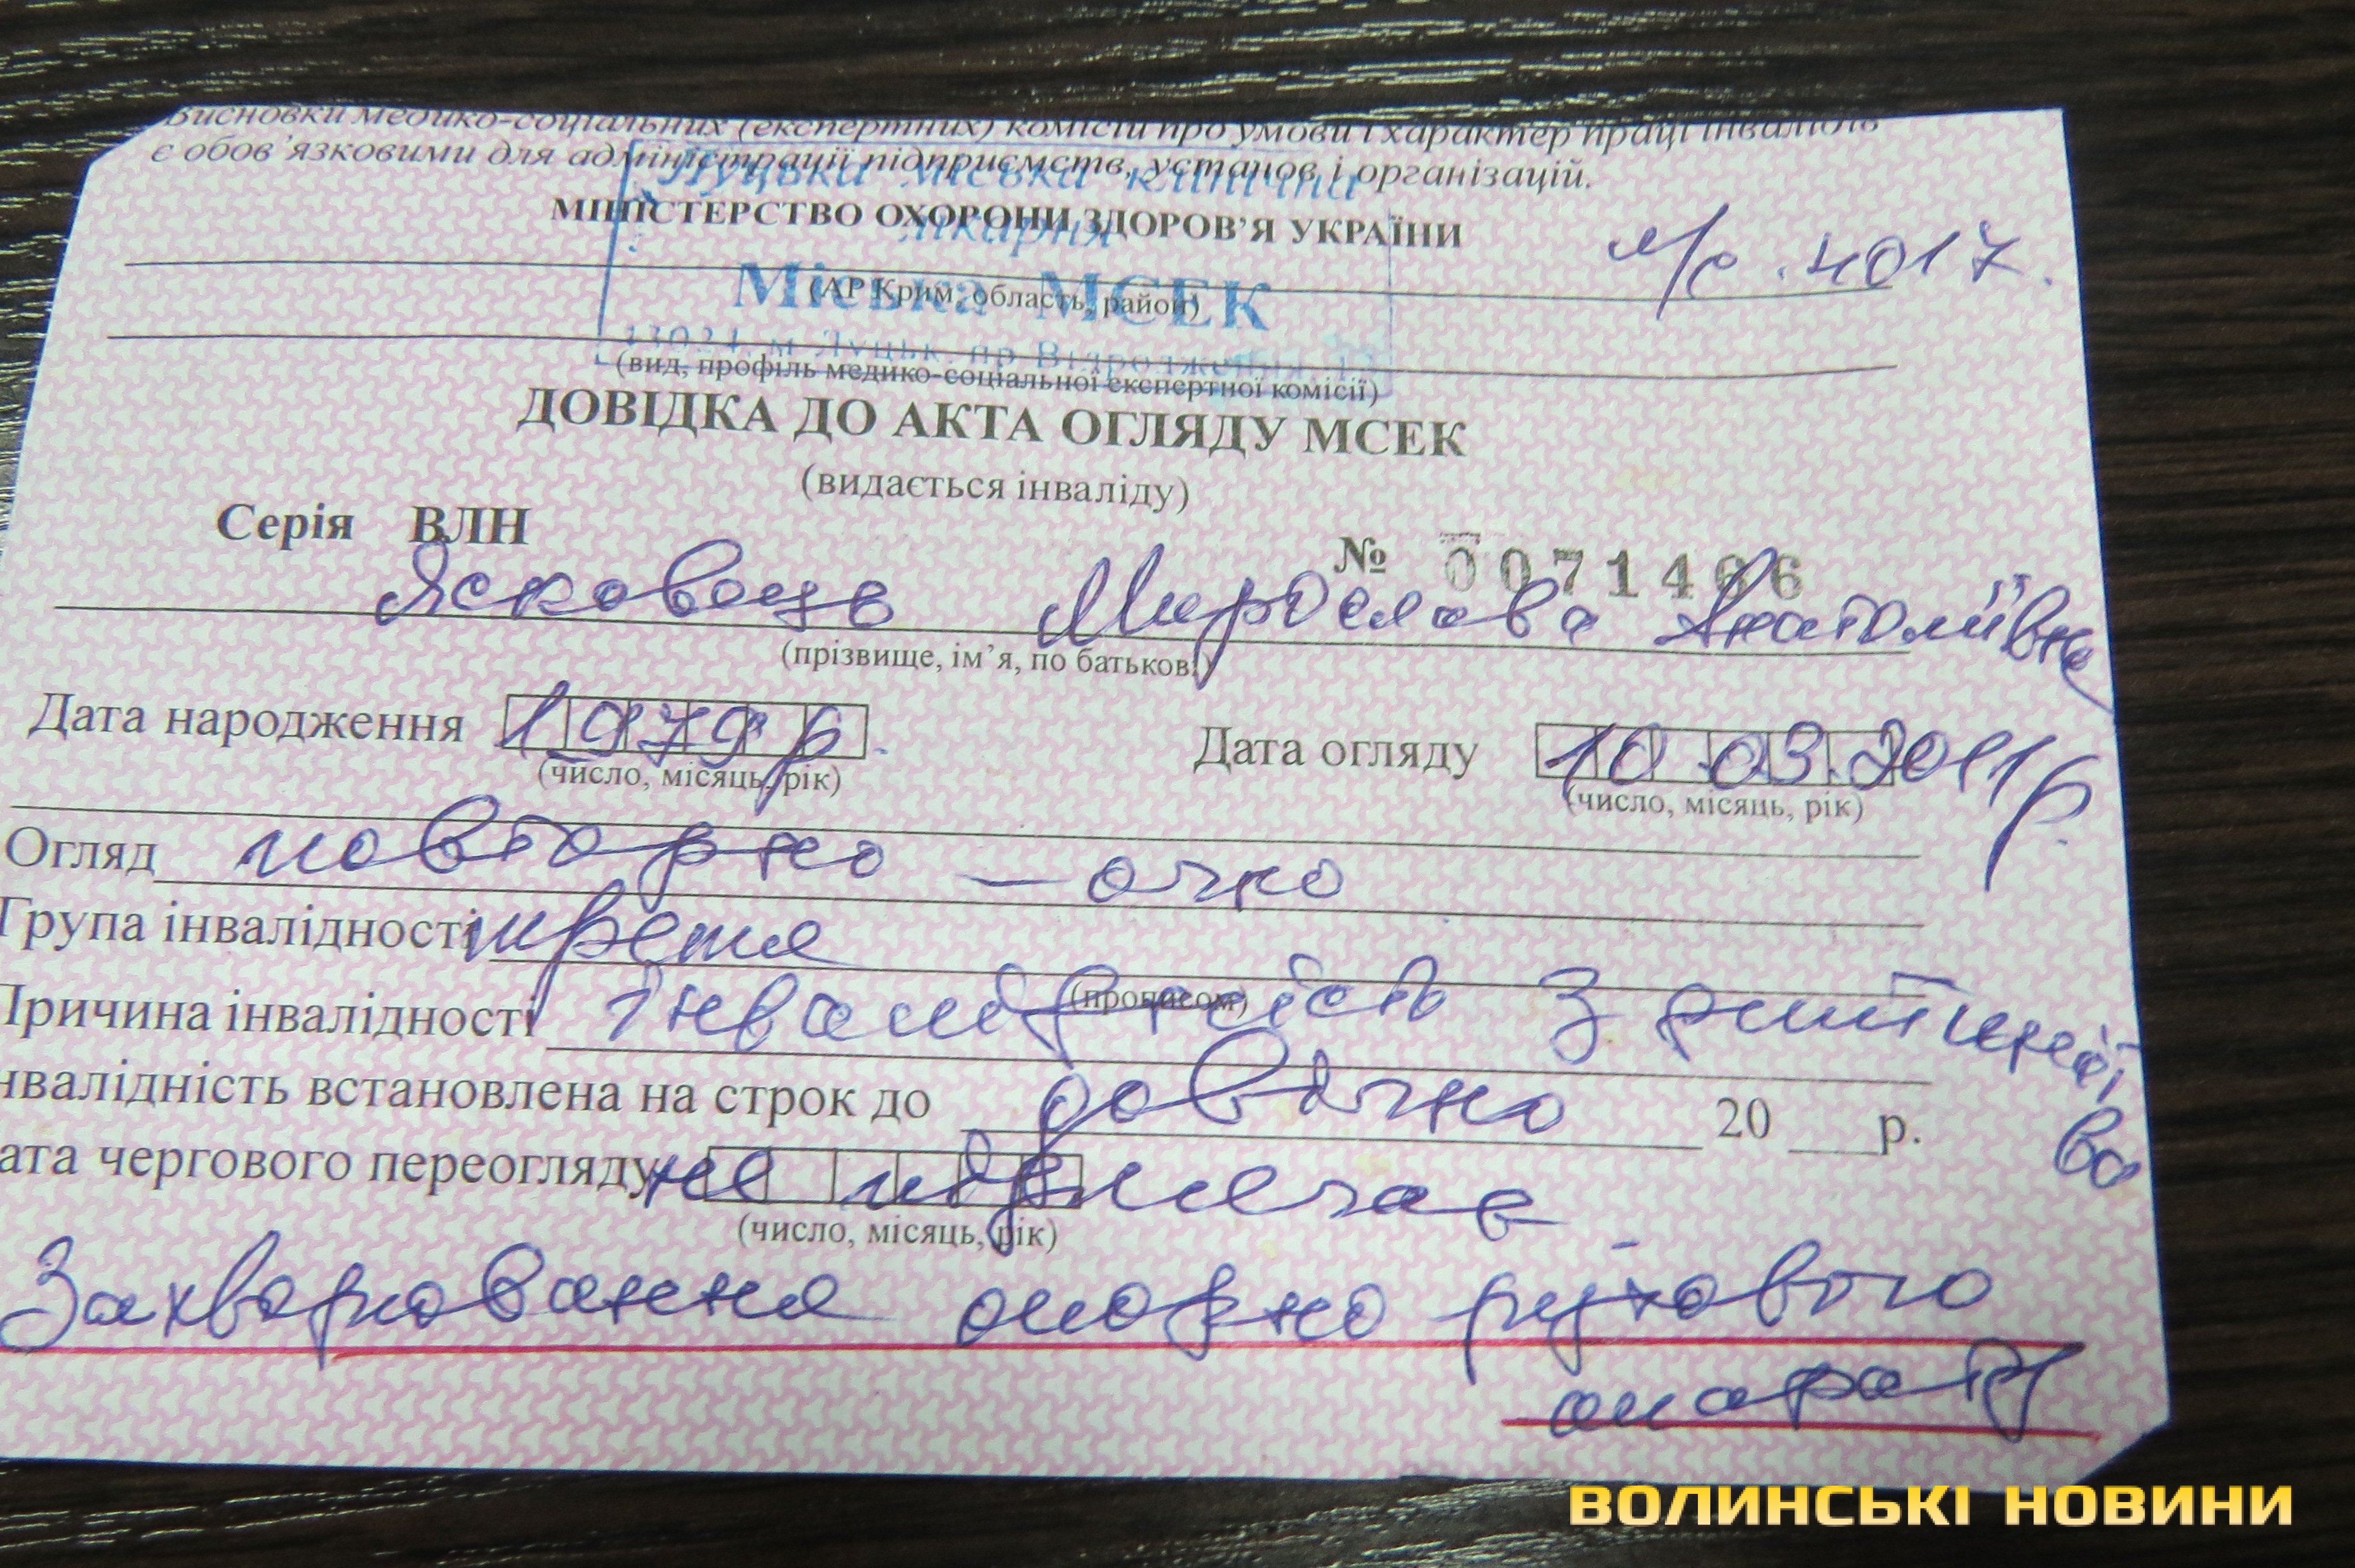 Висновки медико-соціальних (експертних) комісій про умови і характер праці інвалідів
є обов'язковими для адміністрації підприємств, установ і організацій.
Луцька міська клінічна
лікарня
МІНІСТЕРСТВО ОХОРОНИ ЗДОРОВ'Я УКРАЇНИ
4017.
Міська МСЕК
(АР Крим, область, район)
м. Луцьк, пр. Відродження, 13
(вид, профіль медико-соціальної експертної комісії)
ДОВІДКА ДО АКТА ОГЛЯДУ МСЕК
(видається інваліду)
Серія ВЛН № 0071466
Ясковець Мирослава Анатоліївна
(прізвище, ім'я, по батькові)
Дата народження 1979р. Дата огляду 10.03.2011р.
(число, місяць, рік) (число, місяць, рік)
Огляд повторно – очно
Група інвалідності третя
(прописом)
Причина інвалідності Інвалідність з дитинства
нвалідність встановлена на строк до довічно 20 р.
ата чергового переогляду не підлягає
(число, місяць, рік)
Захворювання опорно рухового
апарату
ВОЛИНСЬКІ НОВИНИ